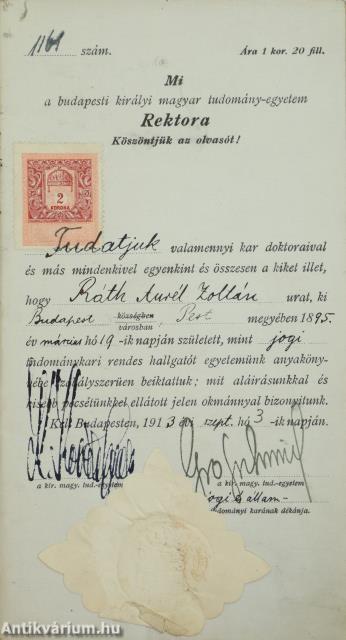 1161 szám. Ára 1 kor. 20 fill.
Mi
a budapesti királyi magyar tudomány-egyetem
Rektora
Köszöntjük az olvasót!
2
KORONA
Tudatjuk valamennyi kar doktoraival
és más mindenkivel egyenkint és összesen a kiket illet,
hogy Ráth Aurél Zoltán urat, ki
Budapest községben városban, Pest megyében 1895.
év március hó 19-ik napján született, mint jogi
tudománykari rendes hallgatót egyetemünk anyaköny-
vébe szabályszerűen beiktattuk; mit aláírásunkkal és
kisebb pecsétünkkel ellátott jelen okmánnyal bizonyitunk.
Kelt Budapesten, 1913 évi szept. hó 3-ik napján.
a kir. magy. tud.-egyetem
a kir. magy. tud.-egyetem
jogi s állam-
dományi karának dékánja.
Antikvárium.hu